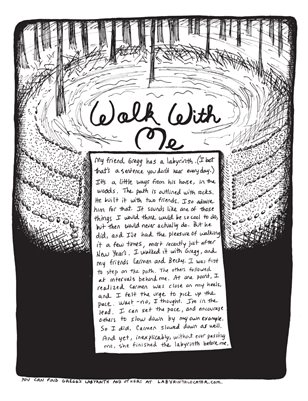 Walk With
Me
My friend Gregg has a labyrinth. (I bet
that's a sentence you don't hear every day.)
It's a little ways from his house, in the
woods. The path is outlined with rocks.
He built it with two friends. I so admire
him for that. It sounds like one of those
things I would think would be so cool to do,
but then would never actually do. But he
did, and I've had the pleasure of walking
it a few times, most recently just after
New Years. I walked it with Gregg, and
my friends Carmen and Becky. I was first
to step on the path. The others followed
at intervals behind me. At one point, I
realized Carmen was close on my heels,
and I felt the urge to pick up the
pace. Wait - no, I thought. I'm in the
lead. I can set the pace, and encourage
others to slow down by my own example.
So I did. Carmen slowed down as well.
And yet, inexplicably, without ever passing
me, she finished the labyrinth before me.
YOU CAN FIND GREGG'S LABYRINTH AND OTHERS AT LABYRINTHLOCATOR.COM.